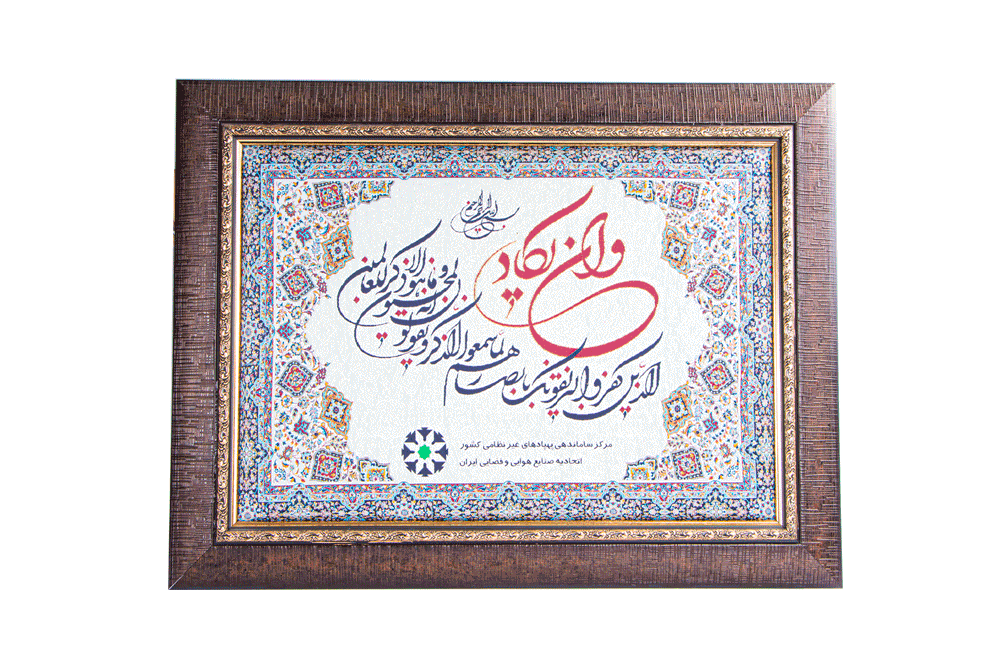 بسم الله الرحمن الرحیم
وان یکاد
الذین کفروا لیزلقونک بابصارهم لما سمعوا الذکر و یقولون
انه لمجنون
و ما هو الا ذکر للعالمین
مرکز ساماندهی پهپادهای غیر نظامی کشور
اتحادیه صنایع هوایی و فضایی ایران